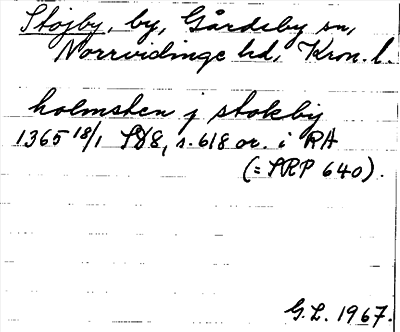 Stojby, by, Gårdsby sn,
Norrvidinge hd, Kron. l.
holmsten j stokby
1365 18/1 SD8, s. 618 or. i RA
(= SRP 640).
G.L. 1967.